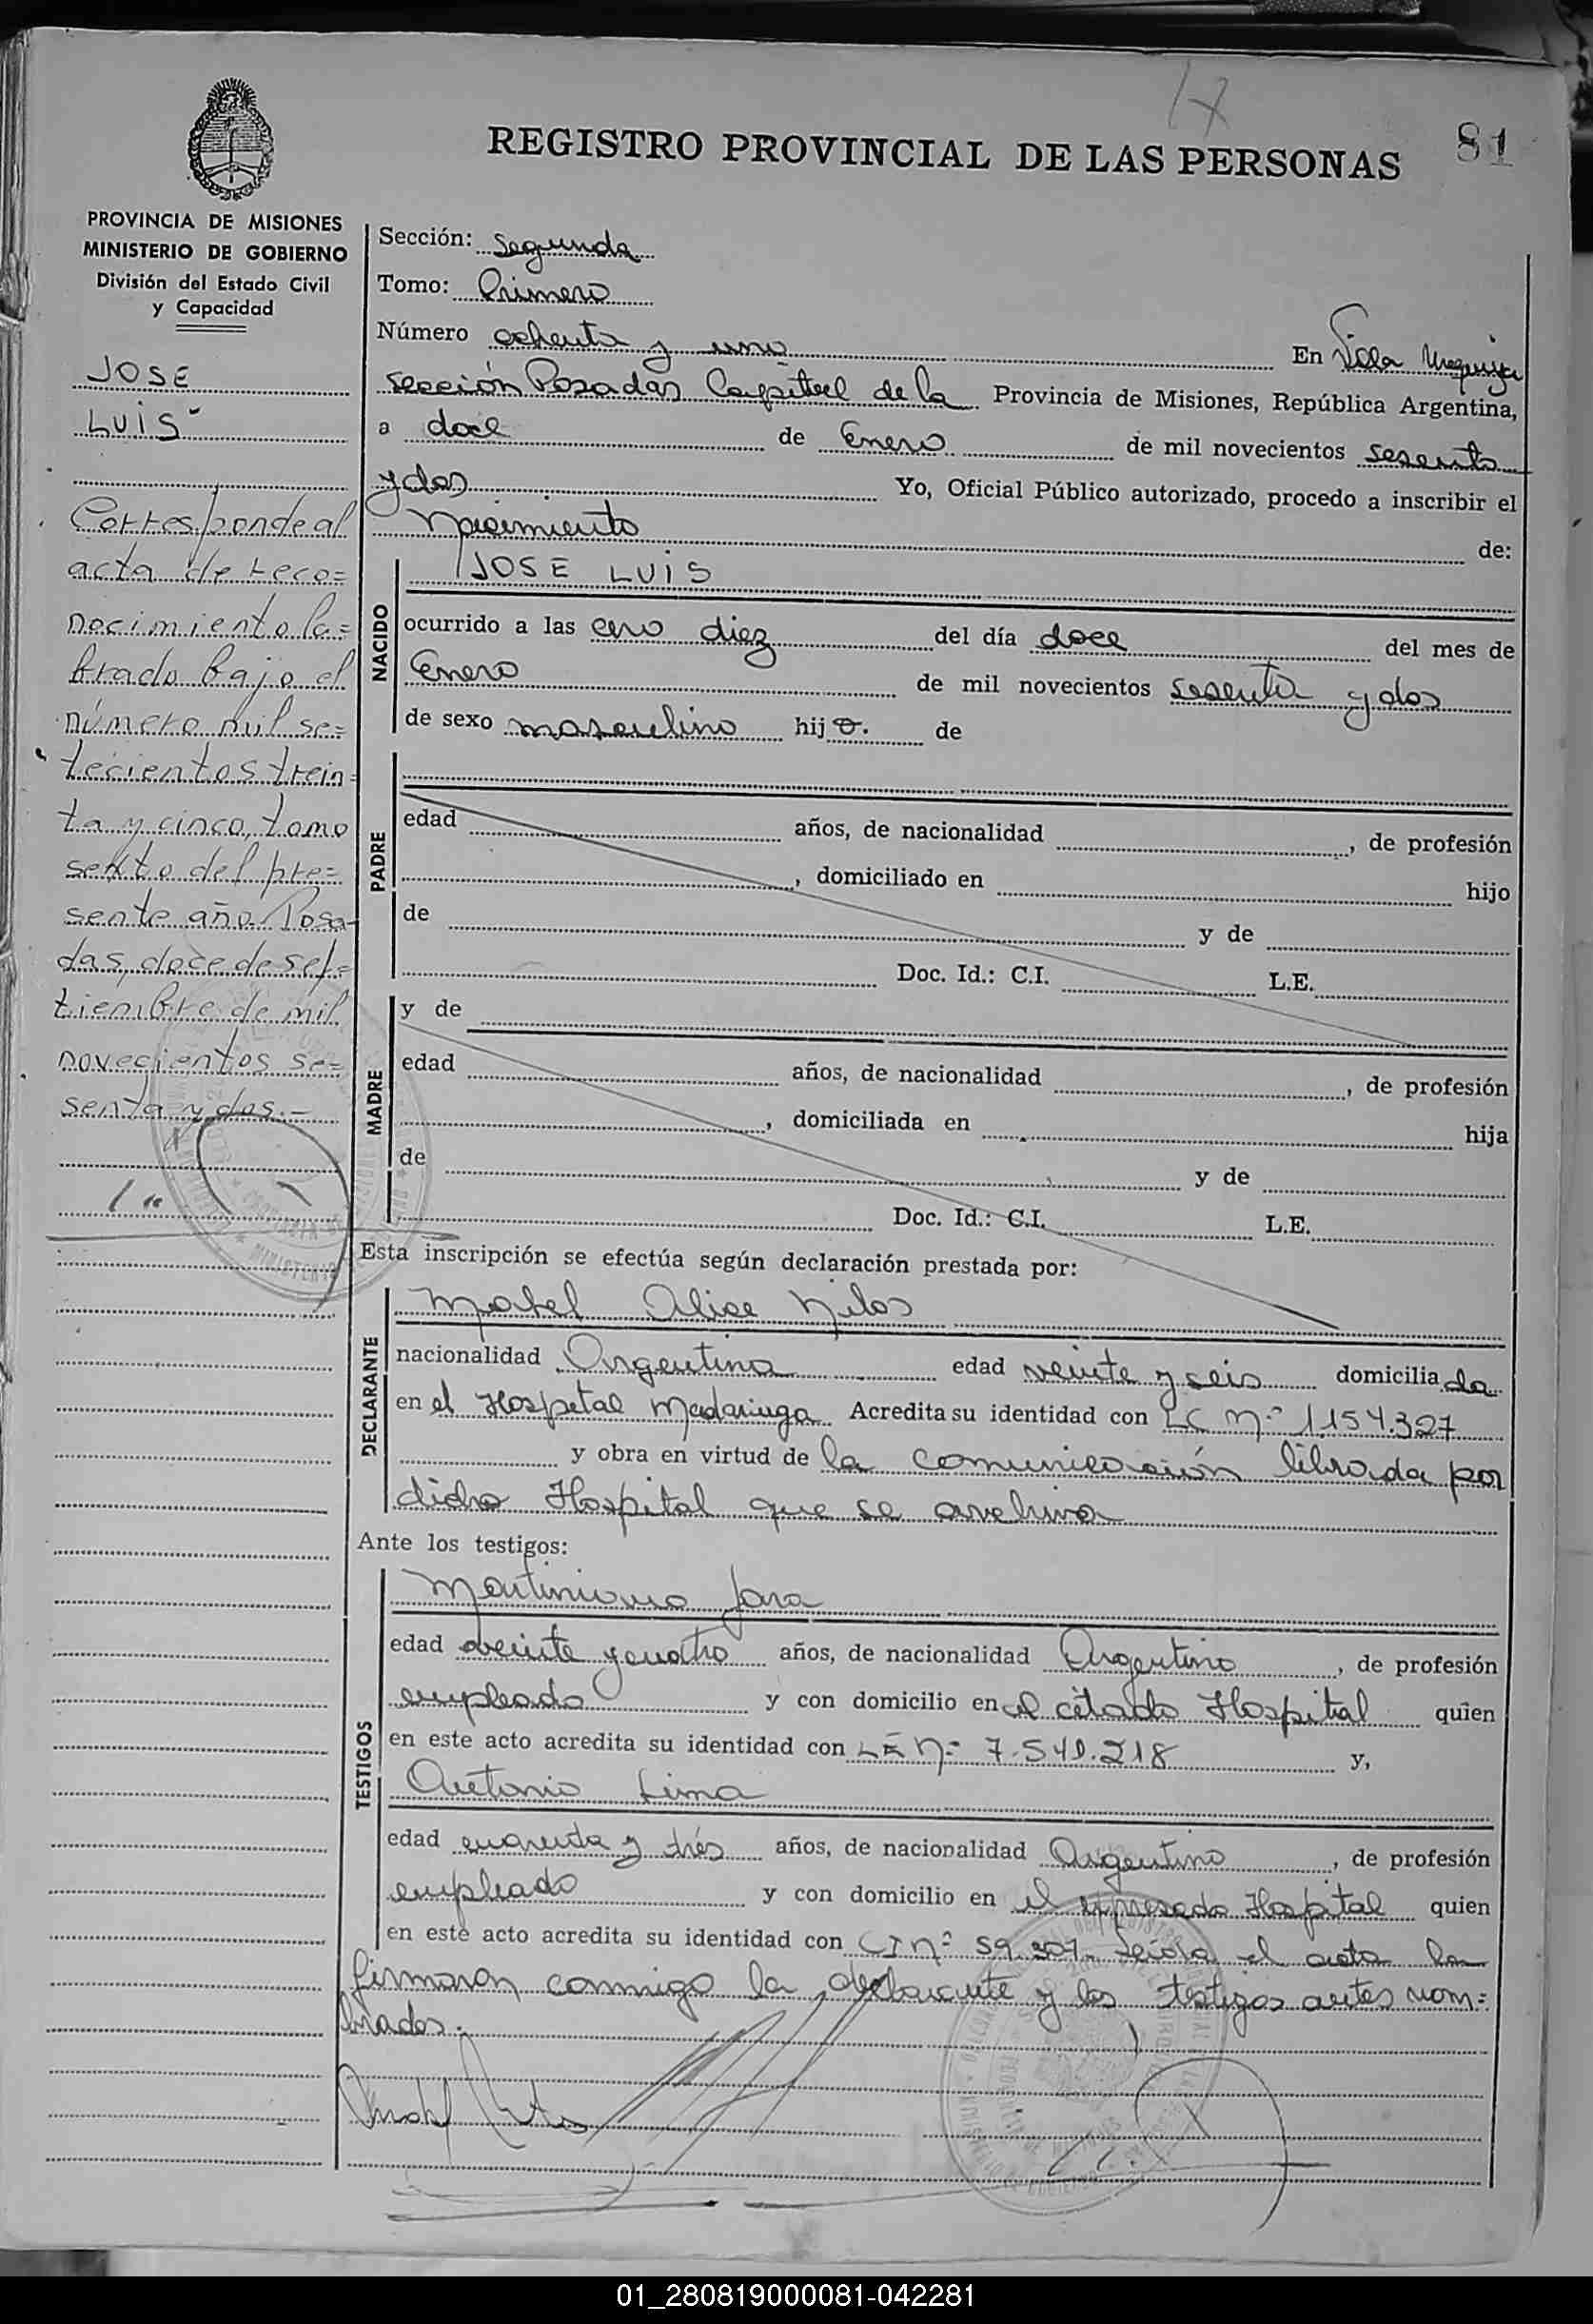 17
81
REGISTRO PROVINCIAL DE LAS PERSONAS
PROVINCIA DE MISIONES
MINISTERIO DE GOBIERNO
División del Estado Civil
y Capacidad
JOSE
LUIS
Corresponde al
acta de reco=
nocimiento la=
brado bajo el
número mil se=
tecientos trein=
ta y cinco, tomo
sexto del pre=
sente año. Posa-
das, doce de sep=
tiembre de mil
novecientos se=
senta y dos.-
Sección: Segunda
Tomo: Primero
Número ochenta y uno En Villa Urquiza
sección Posadas Capital de la Provincia de Misiones, República Argentina,
a doce de Enero de mil novecientos sesenta
y dos Yo, Oficial Público autorizado, procedo a inscribir el
Nacimiento de:
NACIDO
JOSE LUIS
ocurrido a las cero diez del día doce del mes de
Enero de mil novecientos sesenta y dos
de sexo masculino hijo. de
PADRE
edad años, de nacionalidad , de profesión
, domiciliado en hijo
de y de
Doc. Id.: C.I. L.E.
MADRE
y de
edad años, de nacionalidad , de profesión
, domiciliada en hija
de y de
Doc. Id.: C.I. L.E.
Esta inscripción se efectúa según declaración prestada por:
DECLARANTE
Mabel Alice
nacionalidad Argentina edad veinte y seis domiciliada
en el Hospital Madariaga Acredita su identidad con LC Nº 1.154.327
y obra en virtud de la comunicación librada por
dicho Hospital que se archiva
Ante los testigos:
TESTIGOS
Martiniano Jara
edad veinte y cuatro años, de nacionalidad Argentino, de profesión
empleado y con domicilio en el citado Hospital quien
en este acto acredita su identidad con LE Nº 7.541.218 y,
Antonio Lima
edad cuarenta y trés años, de nacionalidad Argentino, de profesión
empleado y con domicilio en el expresado Hospital quien
en este acto acredita su identidad con CI nº 59.307. Leída el acta la
firmaron conmigo la declarante y los testigos antes nom=
brados.
01_280819000081-042281